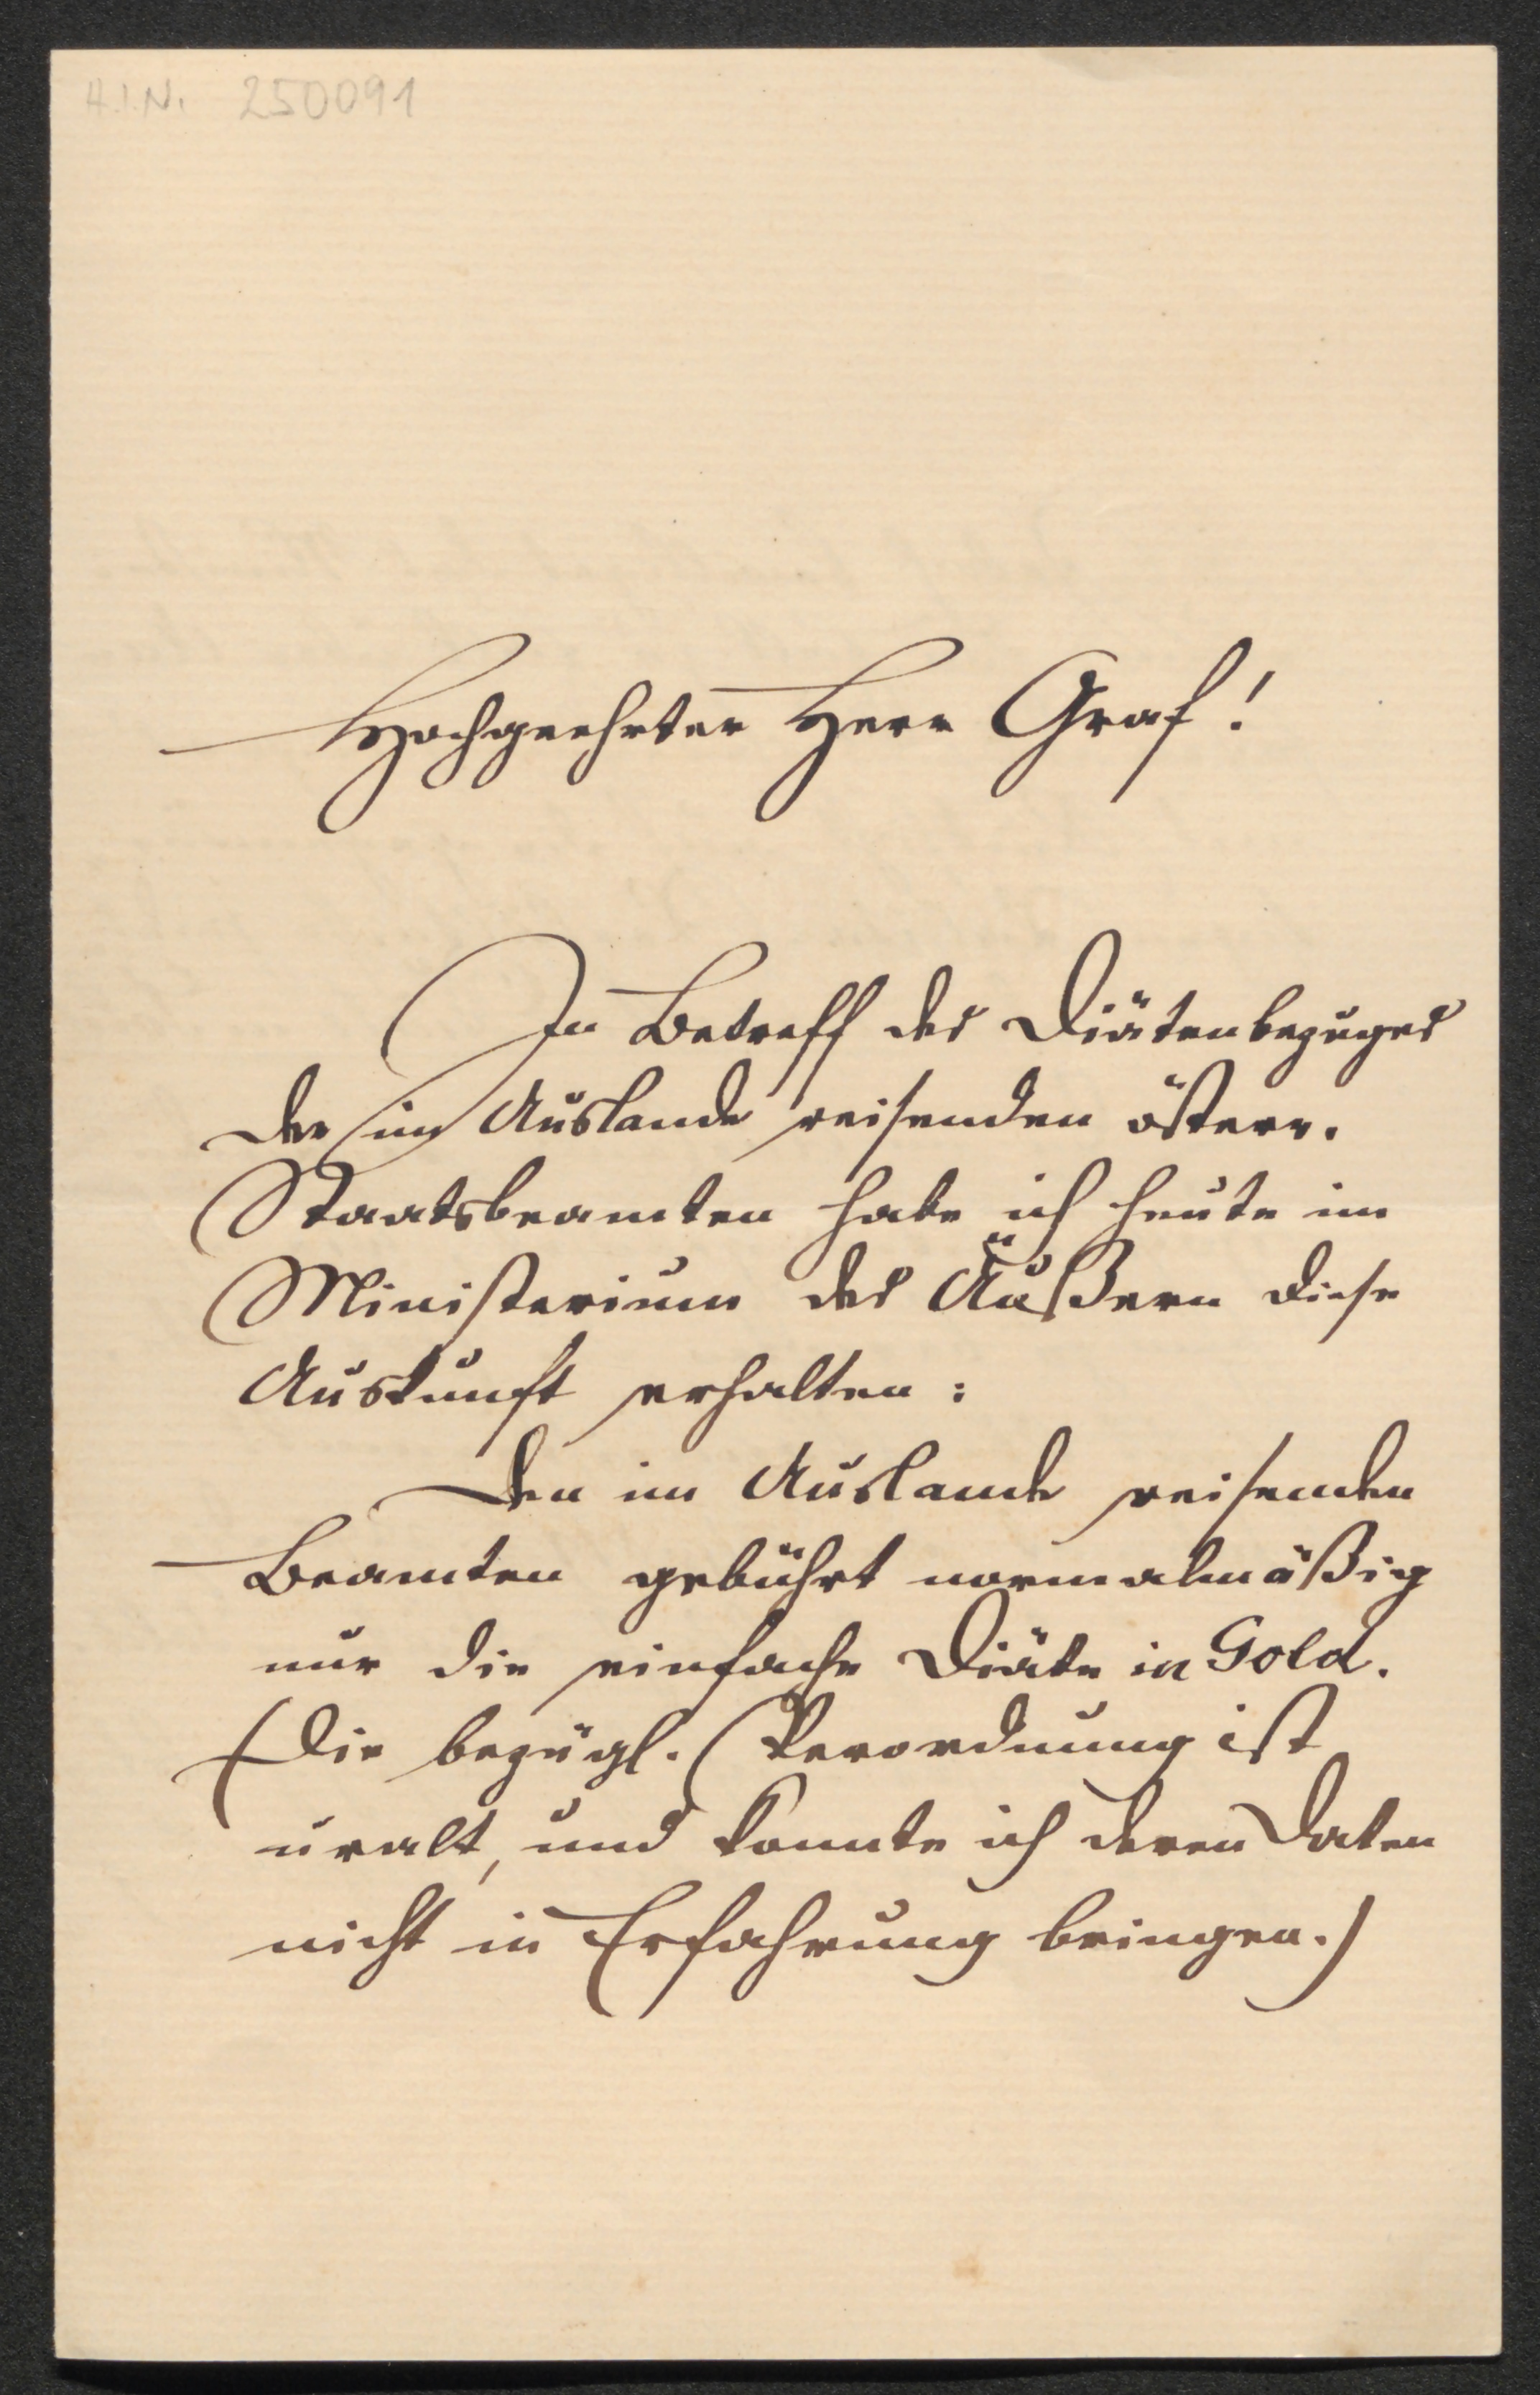 H.I.N. 250091
Hochgeehrter Herr Graf!
In Betreff des Diätenbezuges
der im Auslande reisenden österr.
Staatsbeamten habe ich heute im
Ministerium des Äußern diese
Auskunft erhalten:
Den im Auslande reisenden
Beamten gebührt normalmäßig
nur die einfache Diäte in Gold.
(Die bezügl. Verordnung ist
uralt, und konnte ich deren Daten
nicht in Erfahrung bringen.)